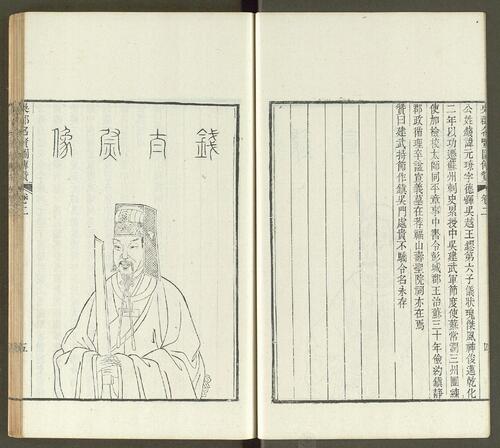 吳郡名賢圖傳贊 卷二
四
公姓錢諱元璙字德輝吳越王鏐第六子儀狀瑰傑風神俊邁乾化
二年以功遷蘇州刺史累授中吳建武軍節度使蘇常潤三州團練
使加檢校太師同平章事中書令彭城郡王治蘇三十年儉約鎮靜
郡政循理卒諡宣義墓在菩福山壽聖院祠亦在焉
贊曰建武持節作鎮吳門處貴不驕令名永存
錢像
吳郡名賢圖傳贊 卷二
五